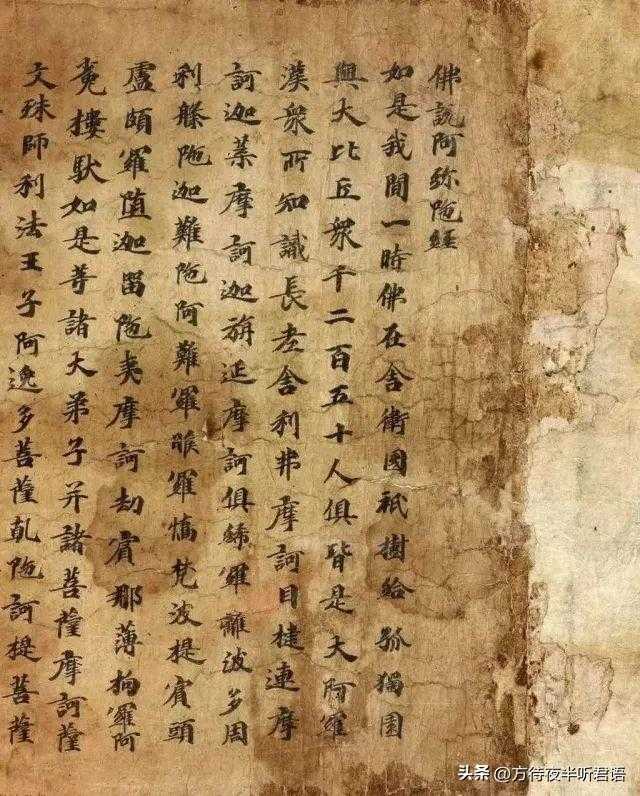 佛說阿弥陁經
如是我聞一時佛在舍衛國祇樹給孤獨園
與大比丘衆千二百五十人俱皆是大阿羅
漢衆所知識長老舍利弗摩訶目揵連摩
訶迦葉摩訶迦旃延摩訶俱絺羅離波多周
利槃陁迦難陁阿難羅睺羅憍梵波提賓頭
盧頗羅堕迦留陁夷摩訶劫賓那薄拘羅阿
㝹樓馱如是等諸大弟子并諸菩薩摩訶薩
文殊師利法王子阿逸多菩薩乹陁訶提菩薩
头条 @方待夜半听君语